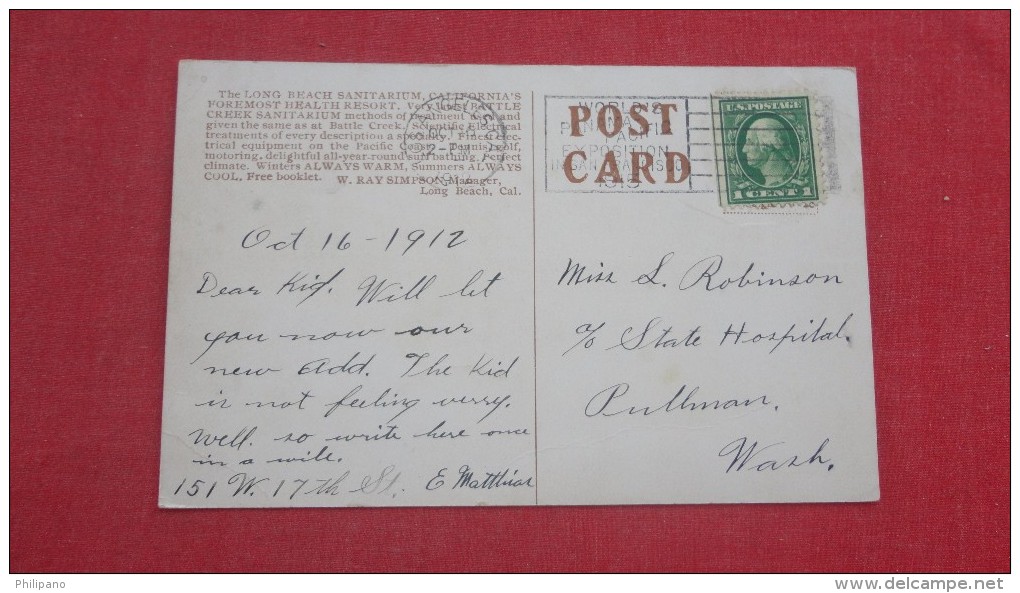 The LONG BEACH SANITARIUM, CALIFORNIA'S
FOREMOST HEALTH RESORT. Very latest BATTLE
CREEK SANITARIUM methods of treatment used and
given the same as at Battle Creek. Scientific Electrical
treatments of every description a specialty. Finest elec-
trical equipment on the Pacific Coast. Tennis, golf,
motoring, delightful all-year-round surf bathing. Perfect
climate. Winters ALWAYS WARM, Summers ALWAYS
COOL, Free booklet. W. RAY SIMPSON, Manager,
Long Beach, Cal.
POST
CARD
WORLD'S
PANAMA
PACIFIC
EXPOSITION
IN SAN FRANCISCO
1915
U.S. POSTAGE
1 CENT 1
Oct 16 - 1912
Dear Kid. Will let
you now our
new Add. The Kid
is not feeling verry.
Well. so write here once
in a wile.
151 W. 17th St. E Matthias
Miss L. Robinson
c/o State Hospital.
Pullman.
Wash.
Philipano
www.delcampe.net